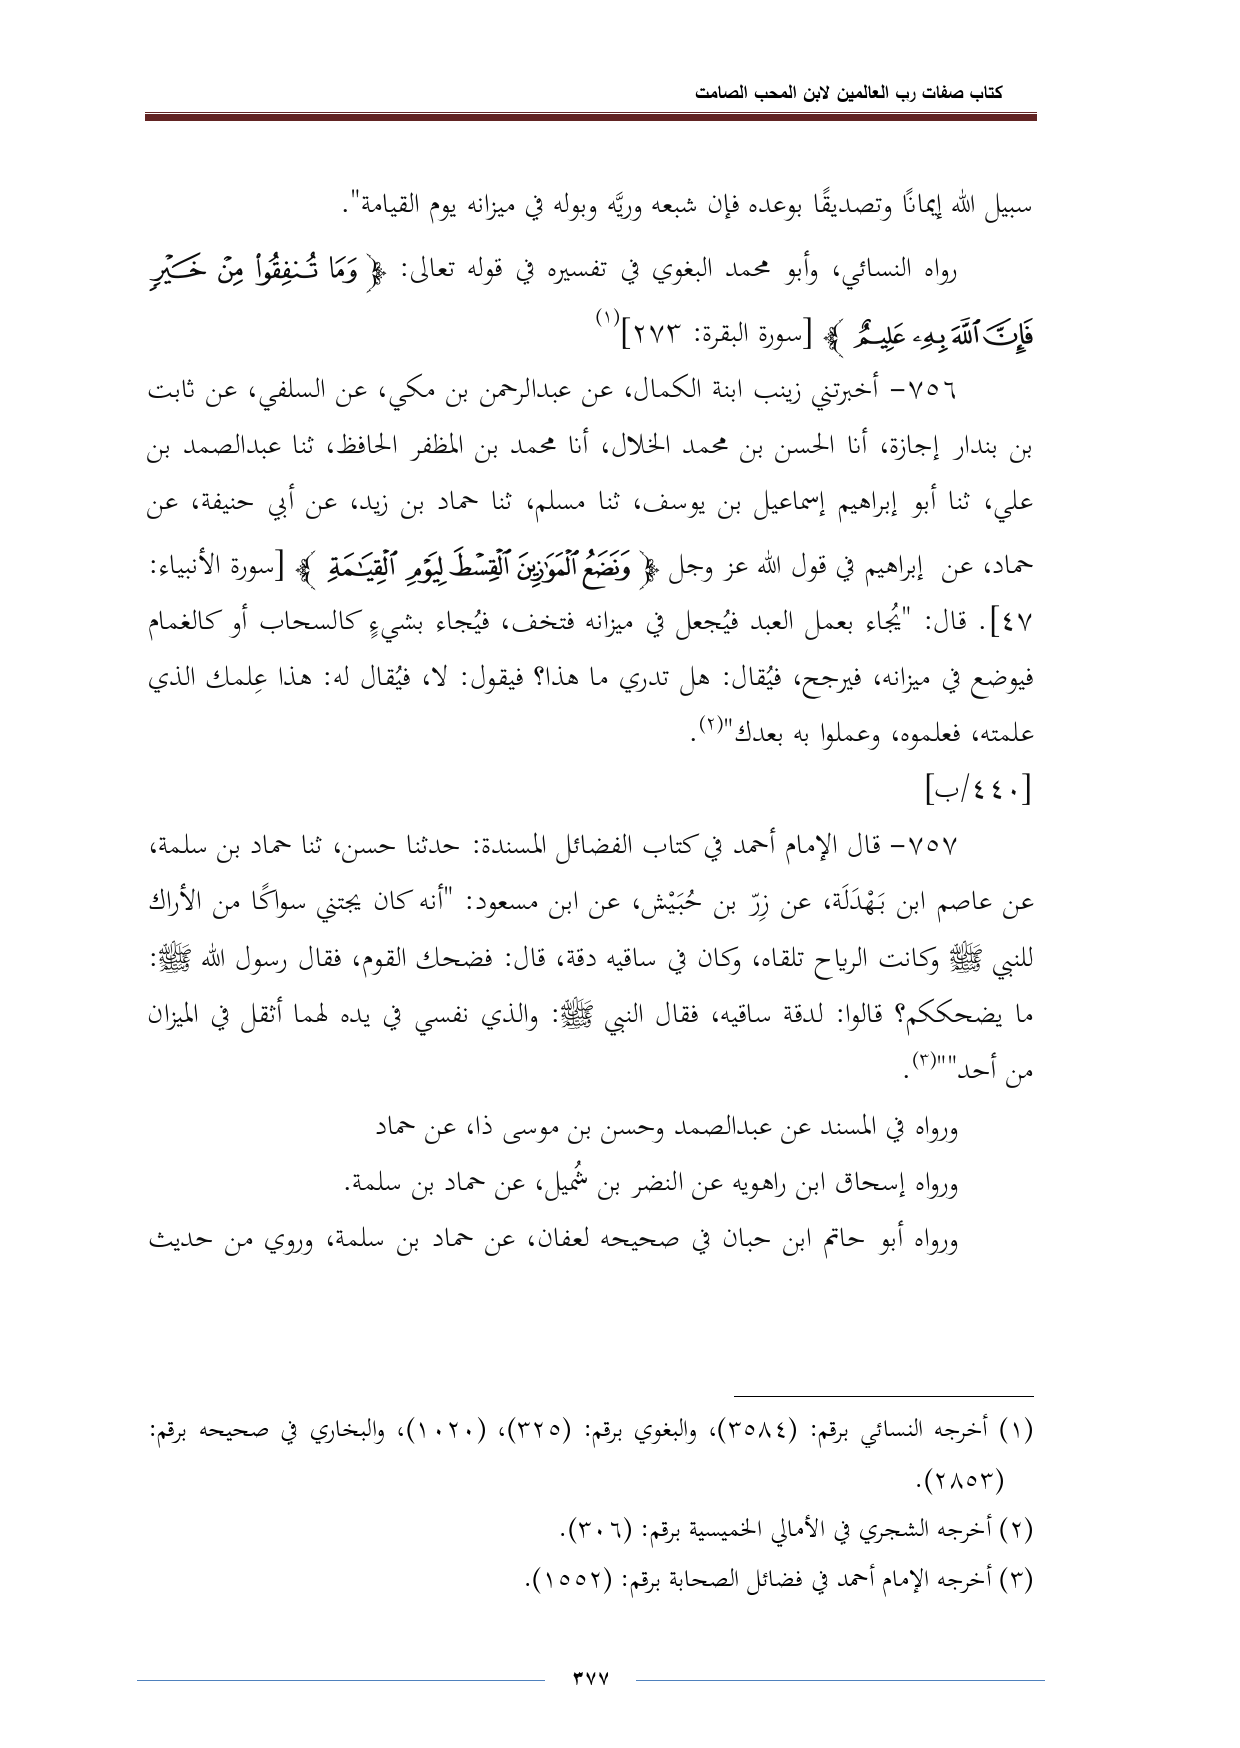 كتاب صفات رب العالمين لابن المحب الصامت
سبيل الله إيمانًا وتصديقًا بوعده فإن شبعه وريَّه وبوله في ميزانه يوم القيامة".
رواه النسائي، وأبو محمد البغوي في تفسيره في قوله تعالى: ﴿ وَمَا تُنفِقُوا۟ مِنْ خَيْرٍ
فَإِنَّ ٱللَّهَ بِهِۦ عَلِيمٌ ﴾ [سورة البقرة: ٢٧٣](١)
٧٥٦- أخبرتني زينب ابنة الكمال، عن عبدالرحمن بن مكي، عن السلفي، عن ثابت
بن بندار إجازة، أنا الحسن بن محمد الخلال، أنا محمد بن المظفر الحافظ، ثنا عبدالصمد بن
علي، ثنا أبو إبراهيم إسماعيل بن يوسف، ثنا مسلم، ثنا حماد بن زيد، عن أبي حنيفة، عن
حماد، عن إبراهيم في قول الله عز وجل ﴿ وَنَضَعُ ٱلْمَوَٰزِينَ ٱلْقِسْطَ لِيَوْمِ ٱلْقِيَـٰمَةِ ﴾ [سورة الأنبياء:
٤٧]. قال: "يُجاء بعمل العبد فيُجعل في ميزانه فتخف، فيُجاء بشيءٍ كالسحاب أو كالغمام
فيوضع في ميزانه، فيرجح، فيُقال: هل تدري ما هذا؟ فيقول: لا، فيُقال له: هذا عِلمك الذي
علمته، فعلموه، وعملوا به بعدك"(٢).
[٤٤٠/ب]
٧٥٧- قال الإمام أحمد في كتاب الفضائل المسندة: حدثنا حسن، ثنا حماد بن سلمة،
عن عاصم ابن بَهْدَلَة، عن زِرّ بن حُبَيْش، عن ابن مسعود: "أنه كان يجتني سواكًا من الأراك
للنبي ﷺ وكانت الرياح تلقاه، وكان في ساقيه دقة، قال: فضحك القوم، فقال رسول الله ﷺ:
ما يضحككم؟ قالوا: لدقة ساقيه، فقال النبي ﷺ: والذي نفسي في يده لهما أثقل في الميزان
من أحد""(٣).
ورواه في المسند عن عبدالصمد وحسن بن موسى ذا، عن حماد
ورواه إسحاق ابن راهويه عن النضر بن شُميل، عن حماد بن سلمة.
ورواه أبو حاتم ابن حبان في صحيحه لعفان، عن حماد بن سلمة، وروي من حديث
(١) أخرجه النسائي برقم: (٣٥٨٤)، والبغوي برقم: (٣٢٥)، (١٠٢٠)، والبخاري في صحيحه برقم:
(٢٨٥٣).
(٢) أخرجه الشجري في الأمالي الخميسية برقم: (٣٠٦).
(٣) أخرجه الإمام أحمد في فضائل الصحابة برقم: (١٥٥٢).
٣٧٧